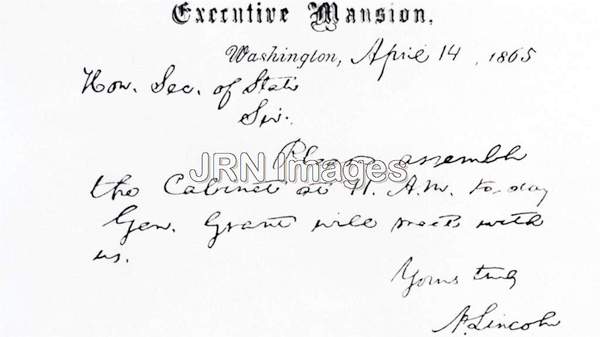 Executive Mansion,
Washington, April 14, 1865
Hon. Sec. of State
Sir.
Please assemble
JRN Images
the Cabinet at 11. A.M. to-day
Gen. Grant will meet with
us.
Yours truly
A. Lincoln